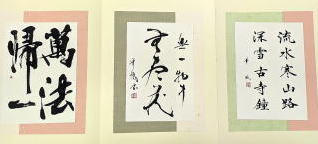 萬法
歸一
無一物中
無尽蔵
流水寒山路
深雪古寺鐘